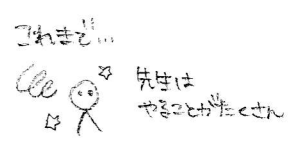 これまで…
先生は
やることがたくさん